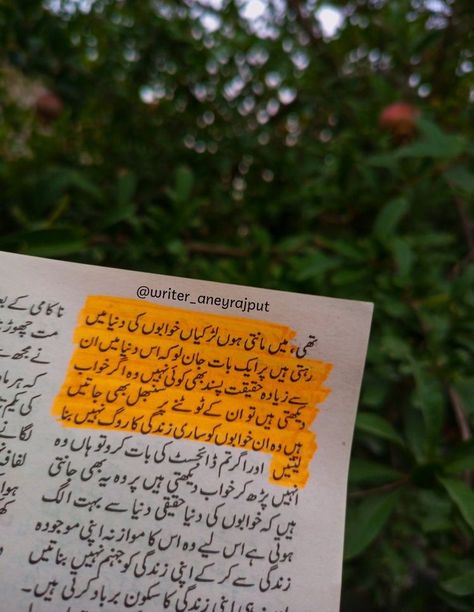 @writer_aneyrajput
تھی، میں مانتی ہوں لڑکیاں خوابوں کی دنیا میں
رہتی ہیں پر ایک بات جان لو کہ اس دنیا میں ان
سے زیادہ حقیقت پسند بھی کوئی نہیں وہ اگر خواب
دیکھتی ہیں تو ان کے ٹوٹنے پر سنبھل بھی جاتیں
ہیں وہ ان خوابوں کو ساری زندگی کا روگ نہیں بنا
لیتیں اور اگر تم ڈائجسٹ کی بات کرو تو ہاں وہ
انہیں پڑھ کر خواب دیکھتی ہیں پر وہ یہ بھی جانتی
ہیں کہ خوابوں کی دنیا حقیقی دنیا سے بہت الگ
ہوتی ہے اس لیے وہ اس کا موازنہ اپنی موجودہ
زندگی سے کر کے اپنی زندگی کو جہنم نہیں بناتیں
ہی اپنی زندگی کا سکون برباد کرتی ہیں۔
ناکامی کے
مت چھوڑ
نے مجھ
کہ ہر
کی
لگانے
ہوا